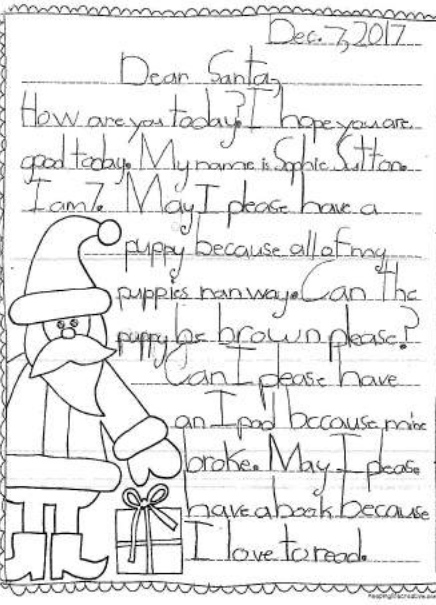 Dec. 7, 2017
Dear Santa,
How are you today? I hope you are
good today. My name is Sophie Sutton.
I am 7. May I please have a
puppy because all of my
puppies ran way. Can the
puppy be brown please?
Can I please have
an Ipad because mine
broke. May I please
have a book because
I love to read.